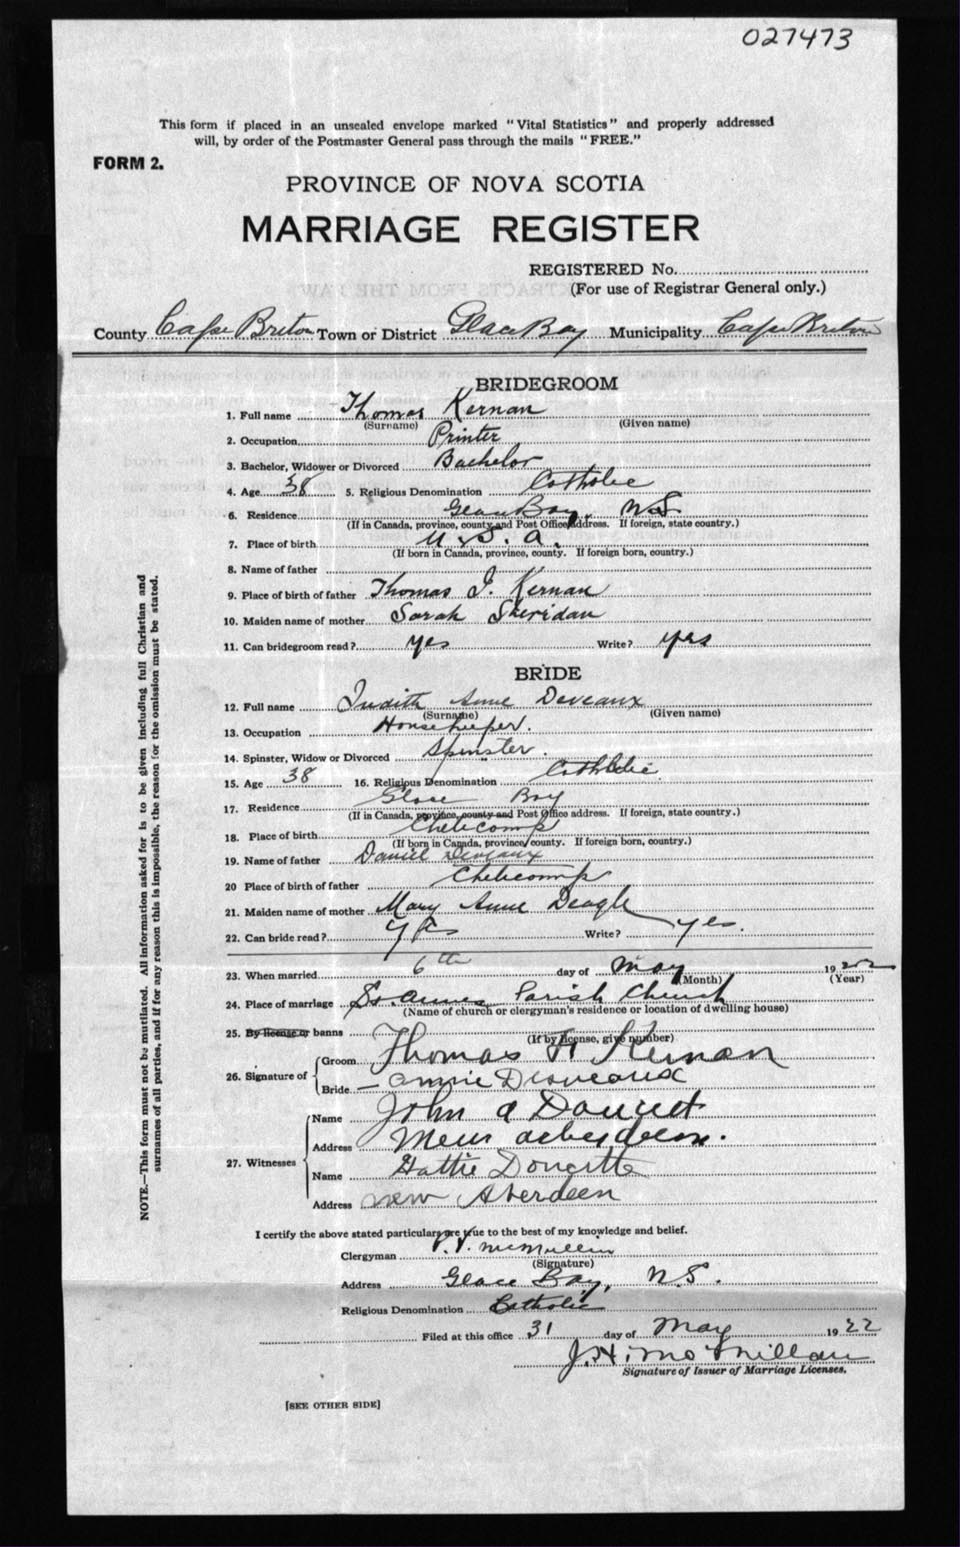 027473
This form if placed in an unsealed envelope marked "Vital Statistics" and properly addressed
will, by order of the Postmaster General pass through the mails "FREE."
FORM 2.
PROVINCE OF NOVA SCOTIA
MARRIAGE REGISTER
REGISTERED No.
(For use of Registrar General only.)
County Cape Breton Town or District Glace Bay Municipality Cape Breton
BRIDEGROOM
1. Full name Thomas Kernan
(Surname) (Given name)
2. Occupation Printer
3. Bachelor, Widower or Divorced Bachelor
4. Age 38 5. Religious Denomination Catholic
6. Residence Glace Bay, N.S.
(If in Canada, province, county and Post Office address. If foreign, state country.)
7. Place of birth U.S.A.
(If born in Canada, province, county. If foreign born, country.)
8. Name of father
9. Place of birth of father Thomas J. Kernan
10. Maiden name of mother Sarah Sheridan
11. Can bridegroom read? yes Write? yes
BRIDE
12. Full name Judith Anne Deveaux
(Surname) (Given name)
13. Occupation Housekeeper.
14. Spinster, Widow or Divorced Spinster.
15. Age 38 16. Religious Denomination Catholic
17. Residence Glace Bay
(If in Canada, province, county and Post Office address. If foreign, state country.)
18. Place of birth Cheticamp
(If born in Canada, province, county. If foreign born, country.)
19. Name of father Daniel Deveaux
20 Place of birth of father Cheticamp
21. Maiden name of mother Mary Anne Deagle
22. Can bride read? Yes Write? yes.
23. When married 6th day of May 1922
(Month) (Year)
24. Place of marriage St Annes Parish Church
(Name of church or clergyman's residence or location of dwelling house)
25. By license or banns
(If by license, give number)
26. Signature of Groom Thomas F Kernan
Bride Annie Desveaux
27. Witnesses Name John A Doucet
Address New Aberdeen.
Name Hattie Doucette
Address New Aberdeen
I certify the above stated particulars are true to the best of my knowledge and belief.
Clergyman McMullin
(Signature)
Address Glace Bay, N.S.
Religious Denomination Catholic
Filed at this office 31 day of May 1922
J. H. McMillan
Signature of Issuer of Marriage Licenses.
[SEE OTHER SIDE]
NOTE.—This form must not be mutilated. All information asked for is to be given including full Christian and
surnames of all parties, and if for any reason this is impossible, the reason for the omission must be stated.